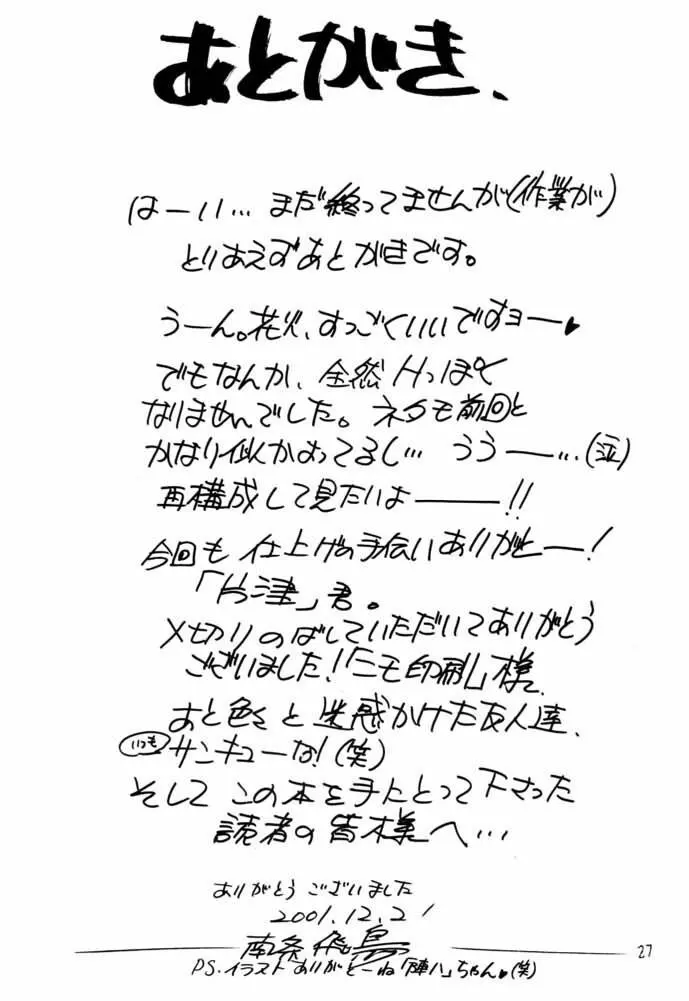 あとがき、
はーい… まだ終ってませんが(作業が)
とりあえずあとがきです。
うーん。花火、すっごくいいですョー♥
でもなんか、全然Hっぽく
なりませんでした。ネタも前回と
かなり似かよってるし… うぅー…(泣)
再構成して見たいよ——!!
今回も仕上げの手伝いありがとー!
「片津」君。
〆切りのばしていただいてありがとう
ございました!「ニモ印刷」様、
あと色々と迷惑かけた友人達、
いつもサンキューな!(笑)
そしてこの本を手にとって下さった
読者の皆様へ…
ありがとうございました
2001.12.21
南条飛鳥
27
PS.イラストありがとーね「陣八」ちゃん♥(笑)